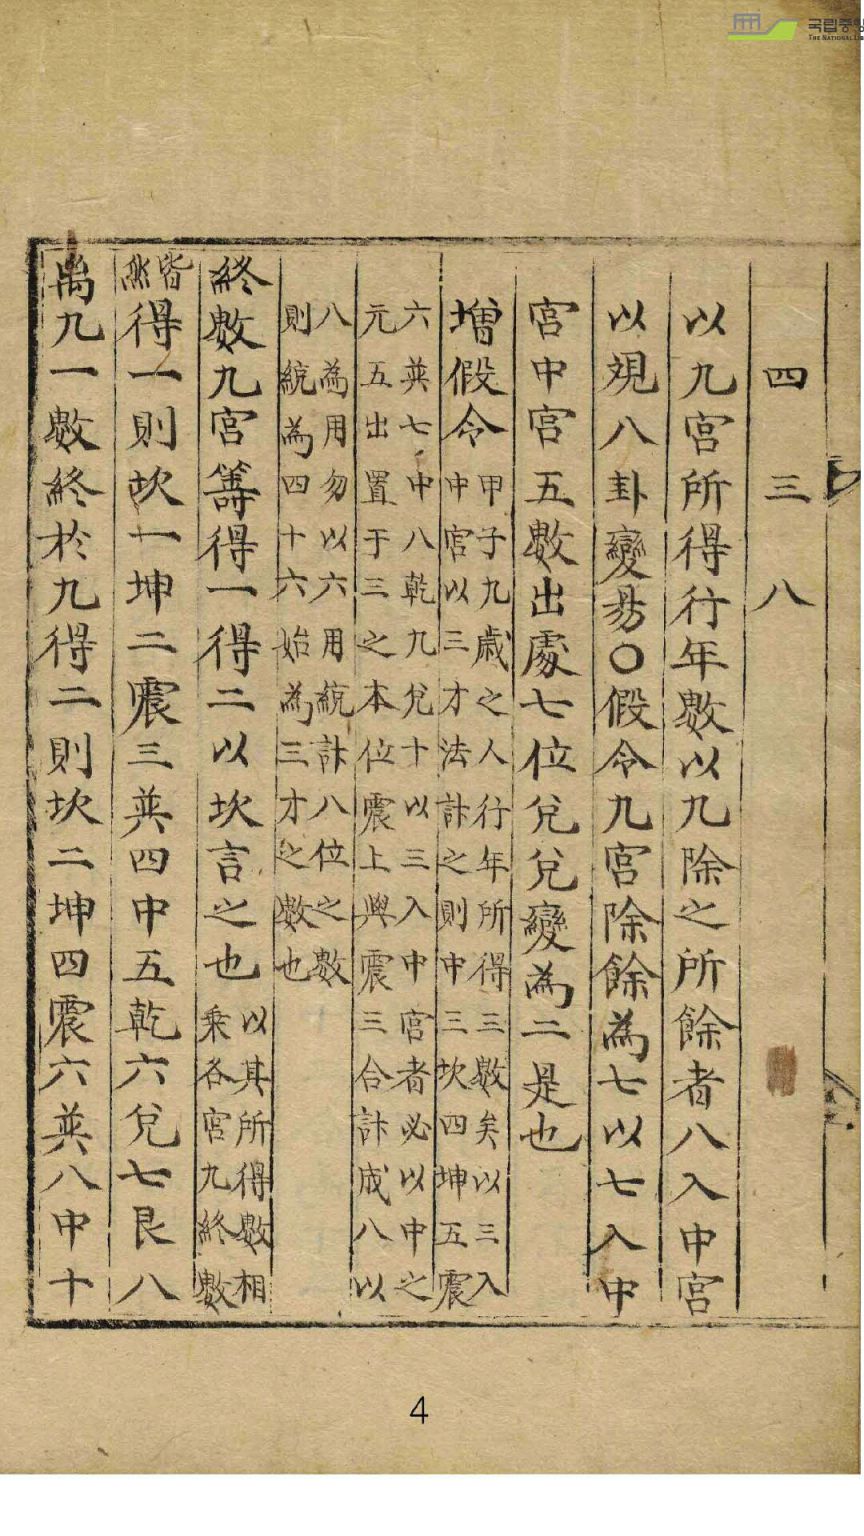 국립중앙
THE NATIONAL LIB
四三八
以九宮所得行年數以九除之所餘者八入中宮
以規八卦變易○假令九宮除餘為七以七入中
宮中宮五數出處七位兌兌變為二是也
增假令甲子九歲之人行年所得三數矣以三入
中宮以三才法計之則中三坎四坤五震
六巽七中八乾九兌十以三入中宮者必以中之
元五出置于三之本位震上與震三合計成八以
八為用勿以六用統計八位之數
則統為四十六始為三才之數也
終數九宮籌得一得二以坎言之也以其所得數相
乘各宮九終數
皆然得一則坎一坤二震三巽四中五乾六兌七艮八
离九一數終於九得二則坎二坤四震六巽八中十
4